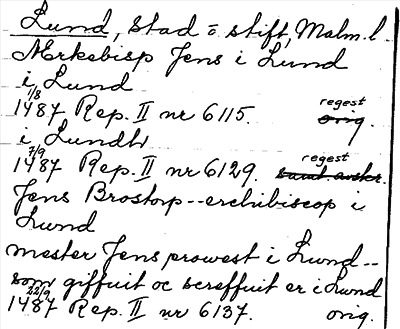 Lund, stad o stift, Malm. l.
Ærkebisp Jens i Lund
i Lund
1/8
1487 Rep. II nr 6115. regest orig.
i Lundh
7/9
1487 Rep. II nr 6129. regest samt. avskr.
Jens Brostorp -- erchibiscop i
Lund
mester Jens prowest i Lund --
som giffuit oc screffuit er i Lund
22/9
1487 Rep. II nr 6137. orig.